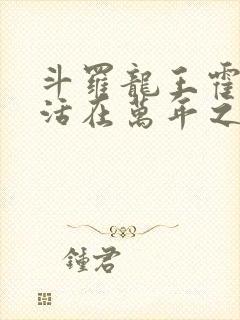 斗羅龍王霍
活在萬年之
鍾君